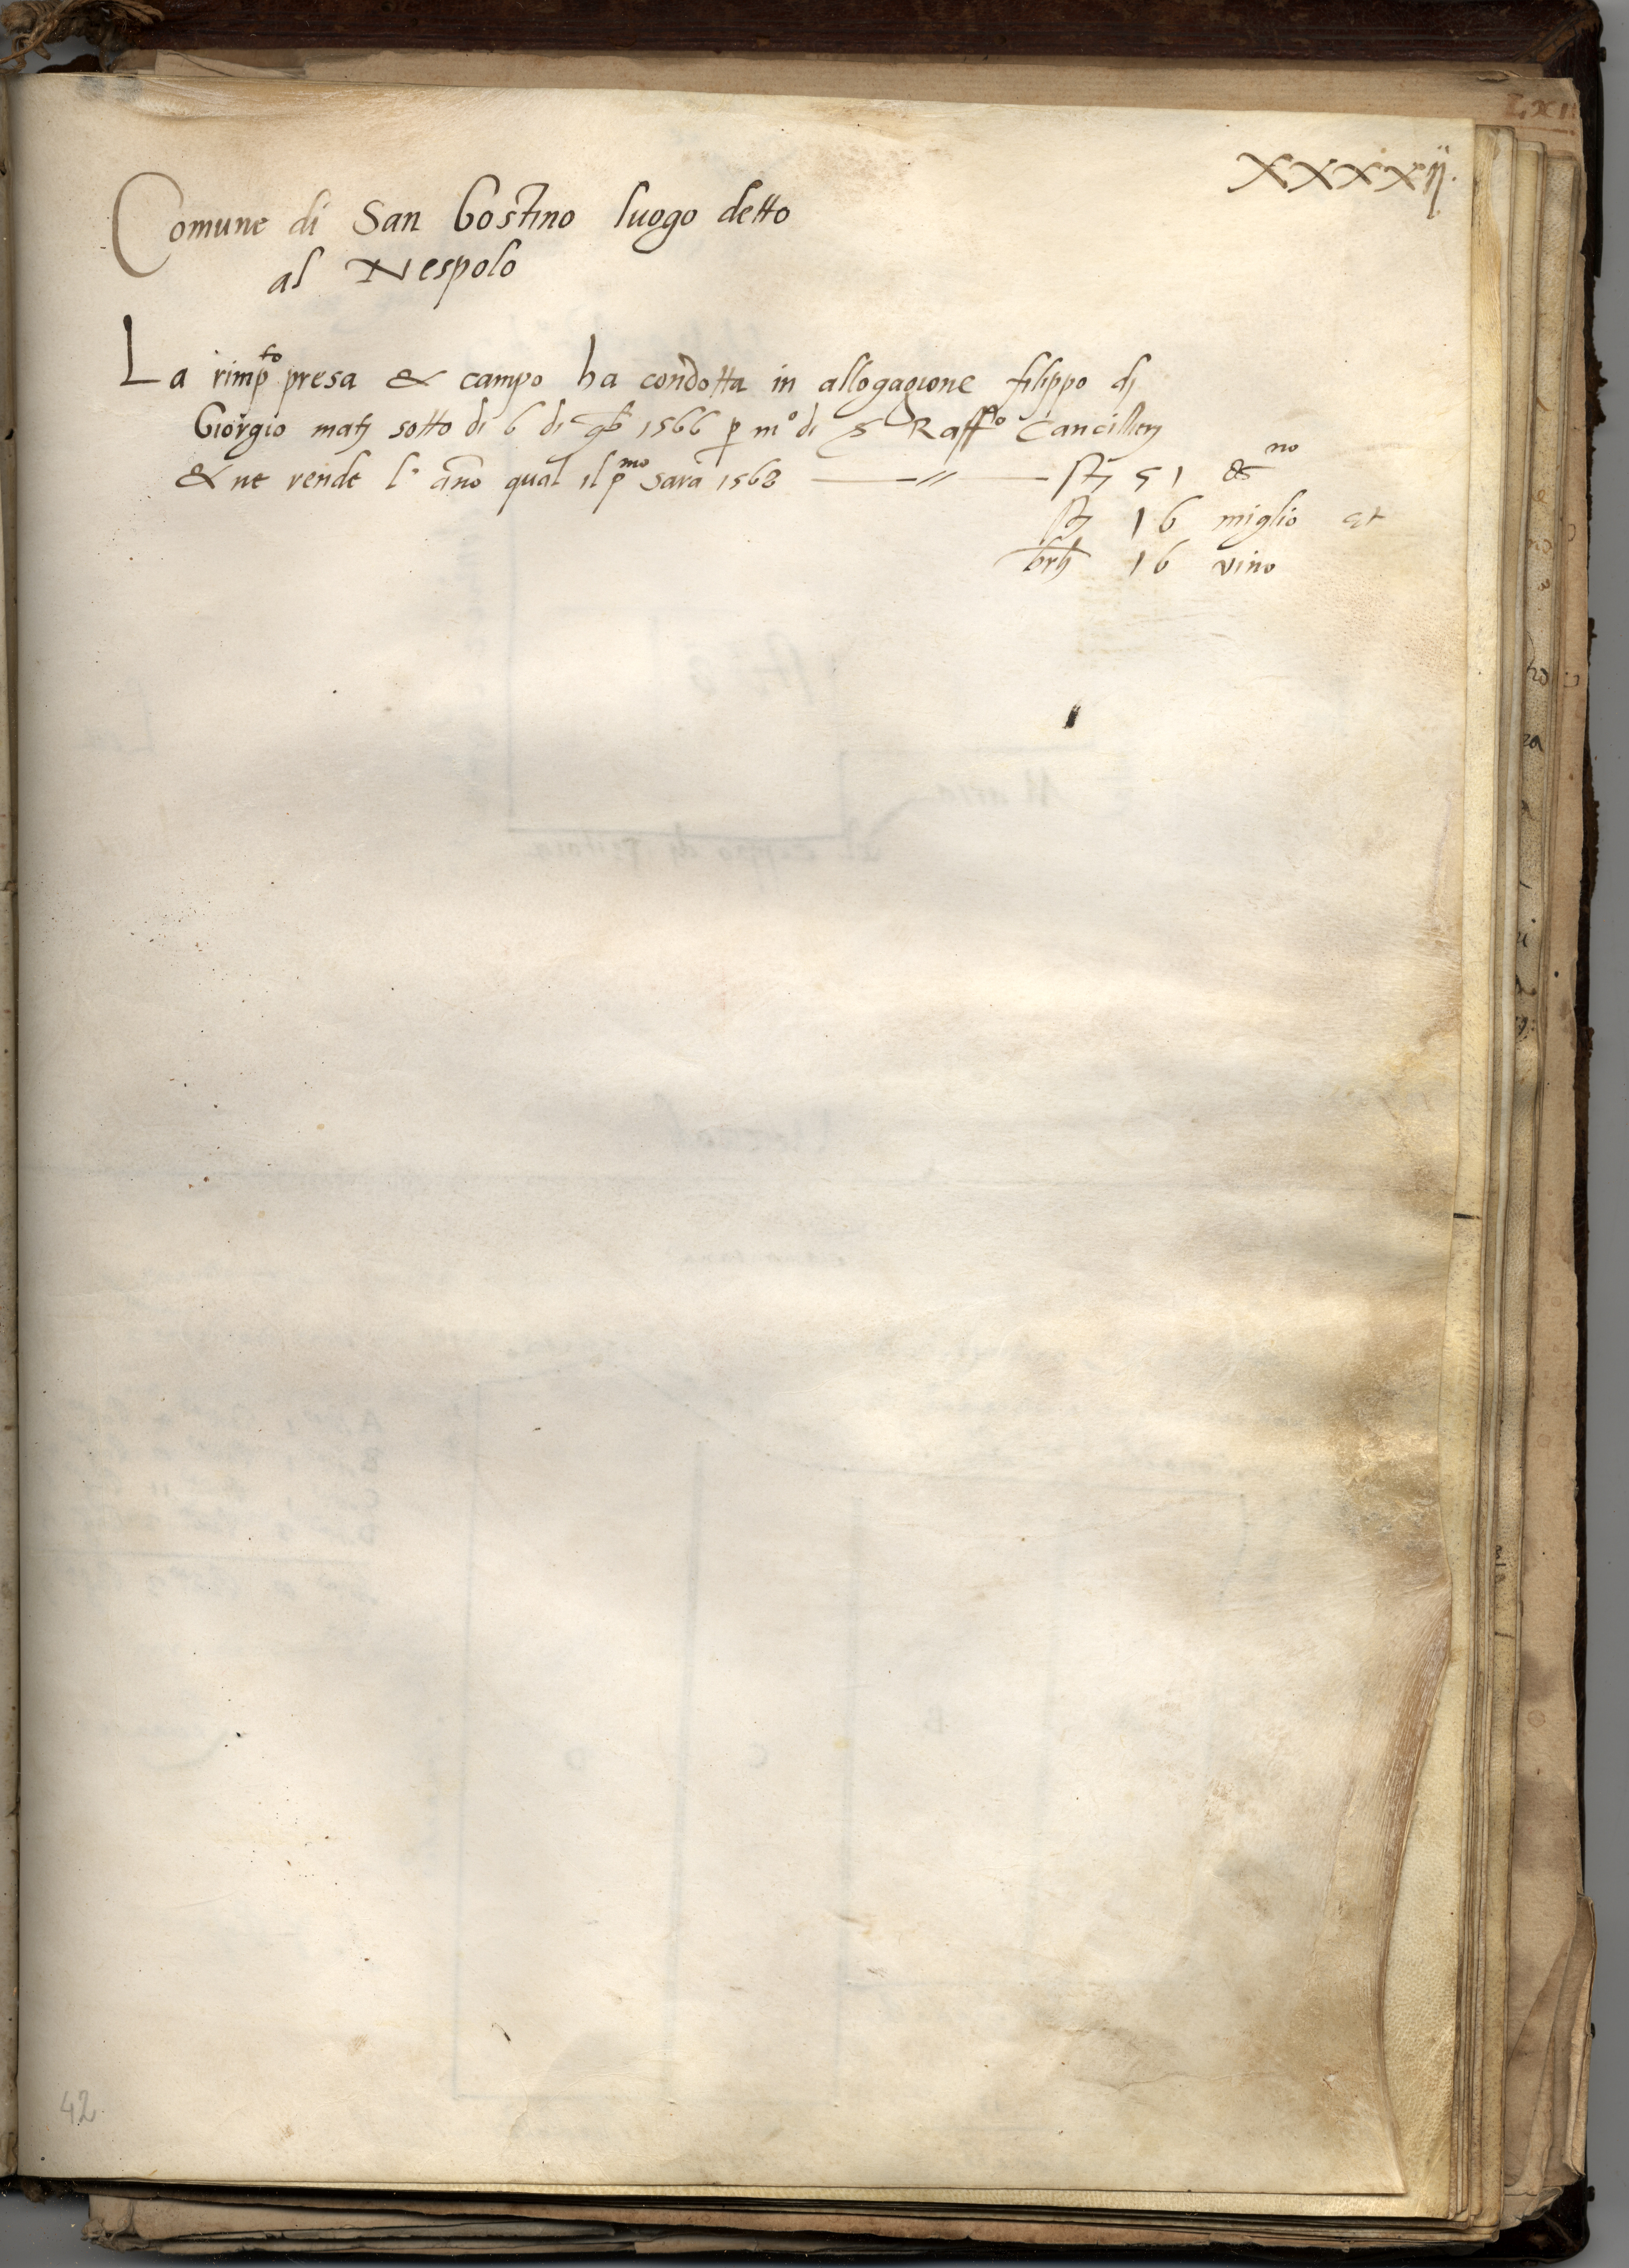 XXXXij.
Comune di San Gostino luogo detto
al Nespolo
La rimp.to presa & campo ha condotta in allogagione filippo dj
Giorgio matj sotto di 6 di 9b 1566 p m° di S Raff.lo Cancillerj
& ne rende l' año qual il p.mo sara 1568 ——//—— stj 51 &no
stj 16 miglio et
brlj 16 vino
42